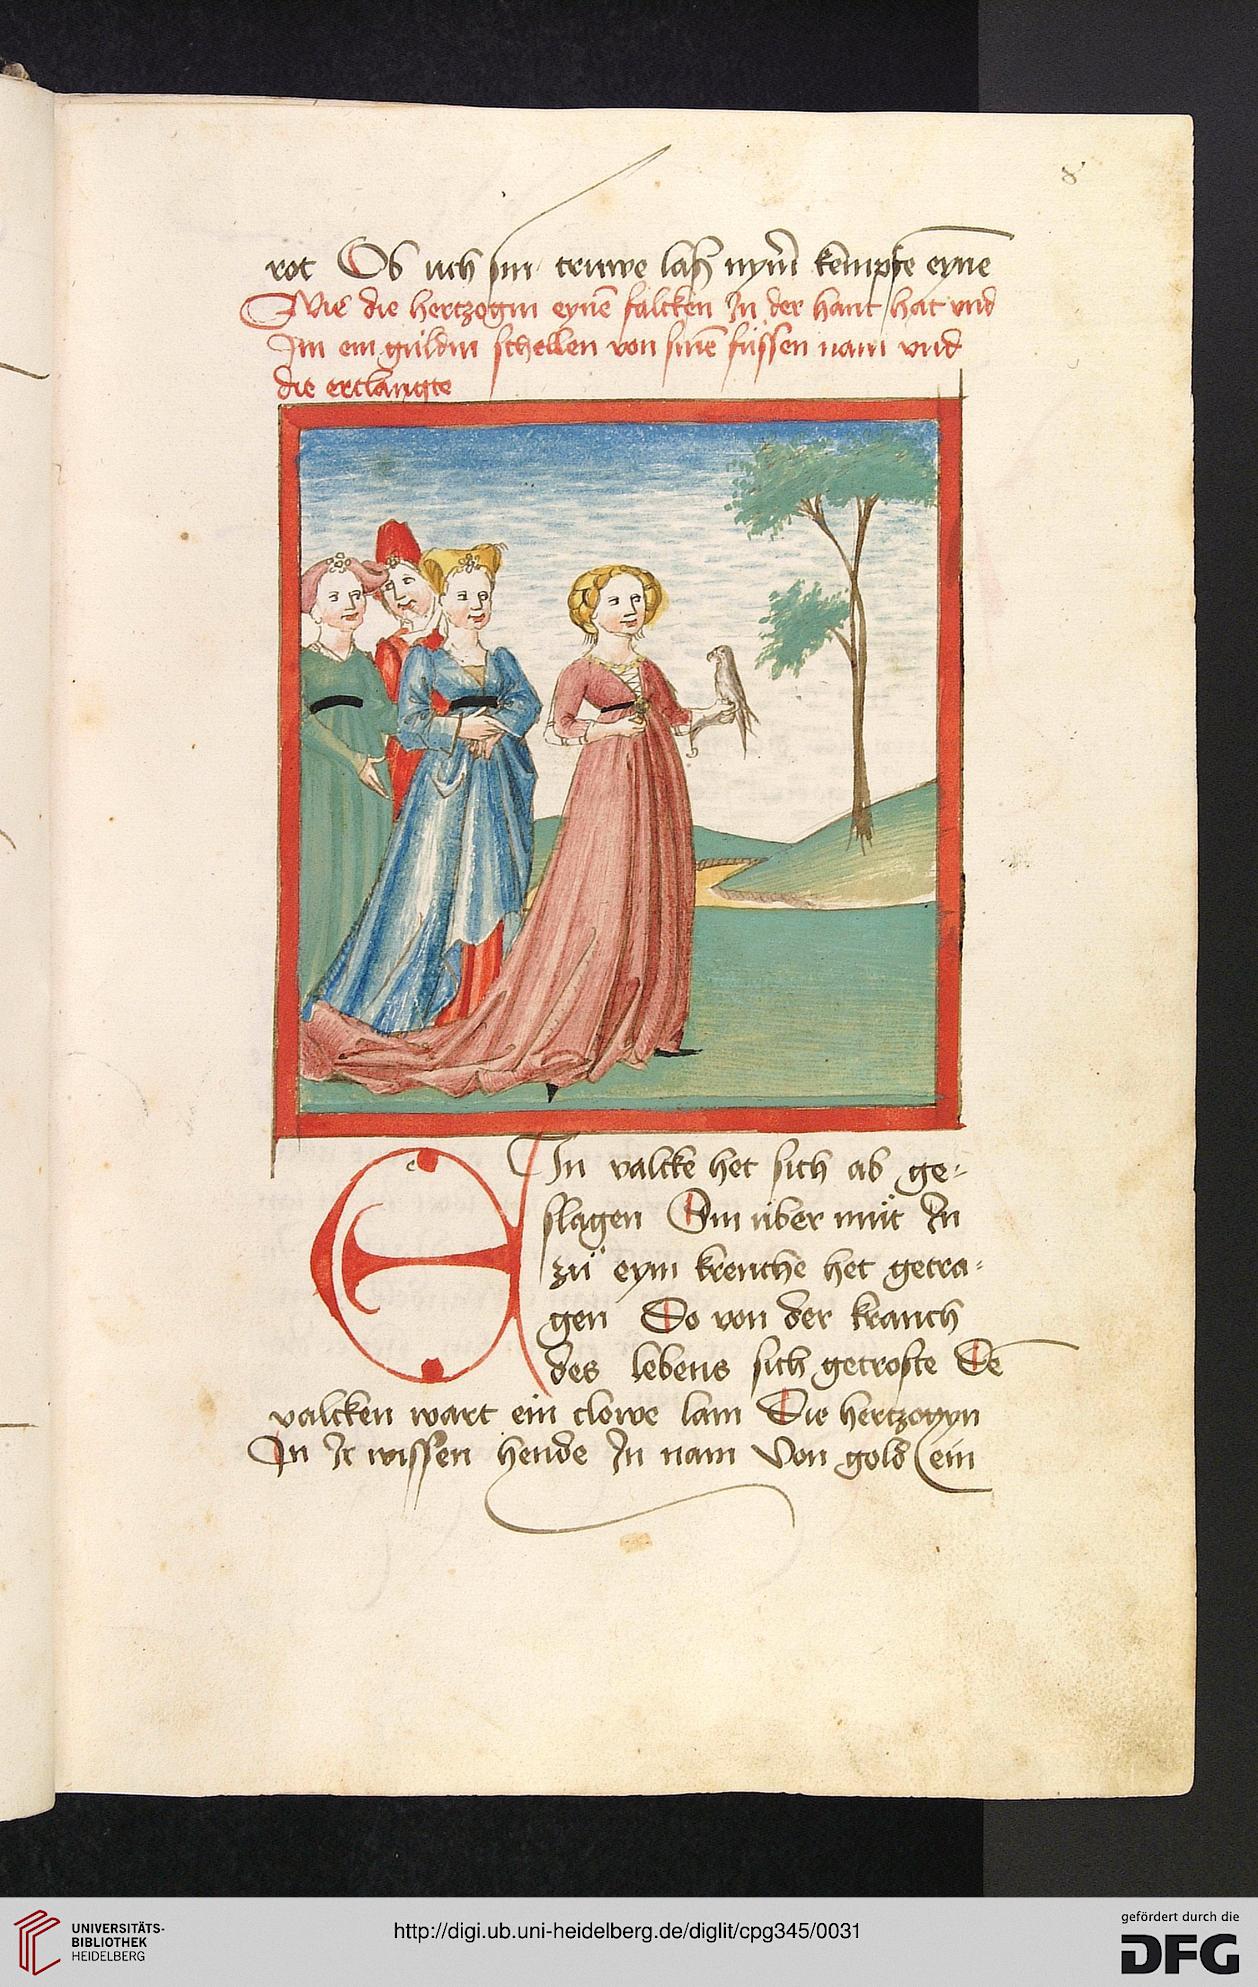 8
rot Ob uch sin truwe lasß nym̄ kempfe eyne
Wie die hertzogin eynē falcken In der hant hat vnd
Im ein guldin schellen von sinē füssen nam vnd
die erclangte
EIn valcke het sich ab ge-
slagen Sin uber müt In
zü eym krenche het getra-
gen Do von der kranch
des lebens sich getroste Dē
valcken wart ein clowe lam Die hertzogyn
In Ir wissen hende In nam Von gold ein
UNIVERSITÄTS-
BIBLIOTHEK
HEIDELBERG
http://digi.ub.uni-heidelberg.de/diglit/cpg345/0031
gefördert durch die
DFG